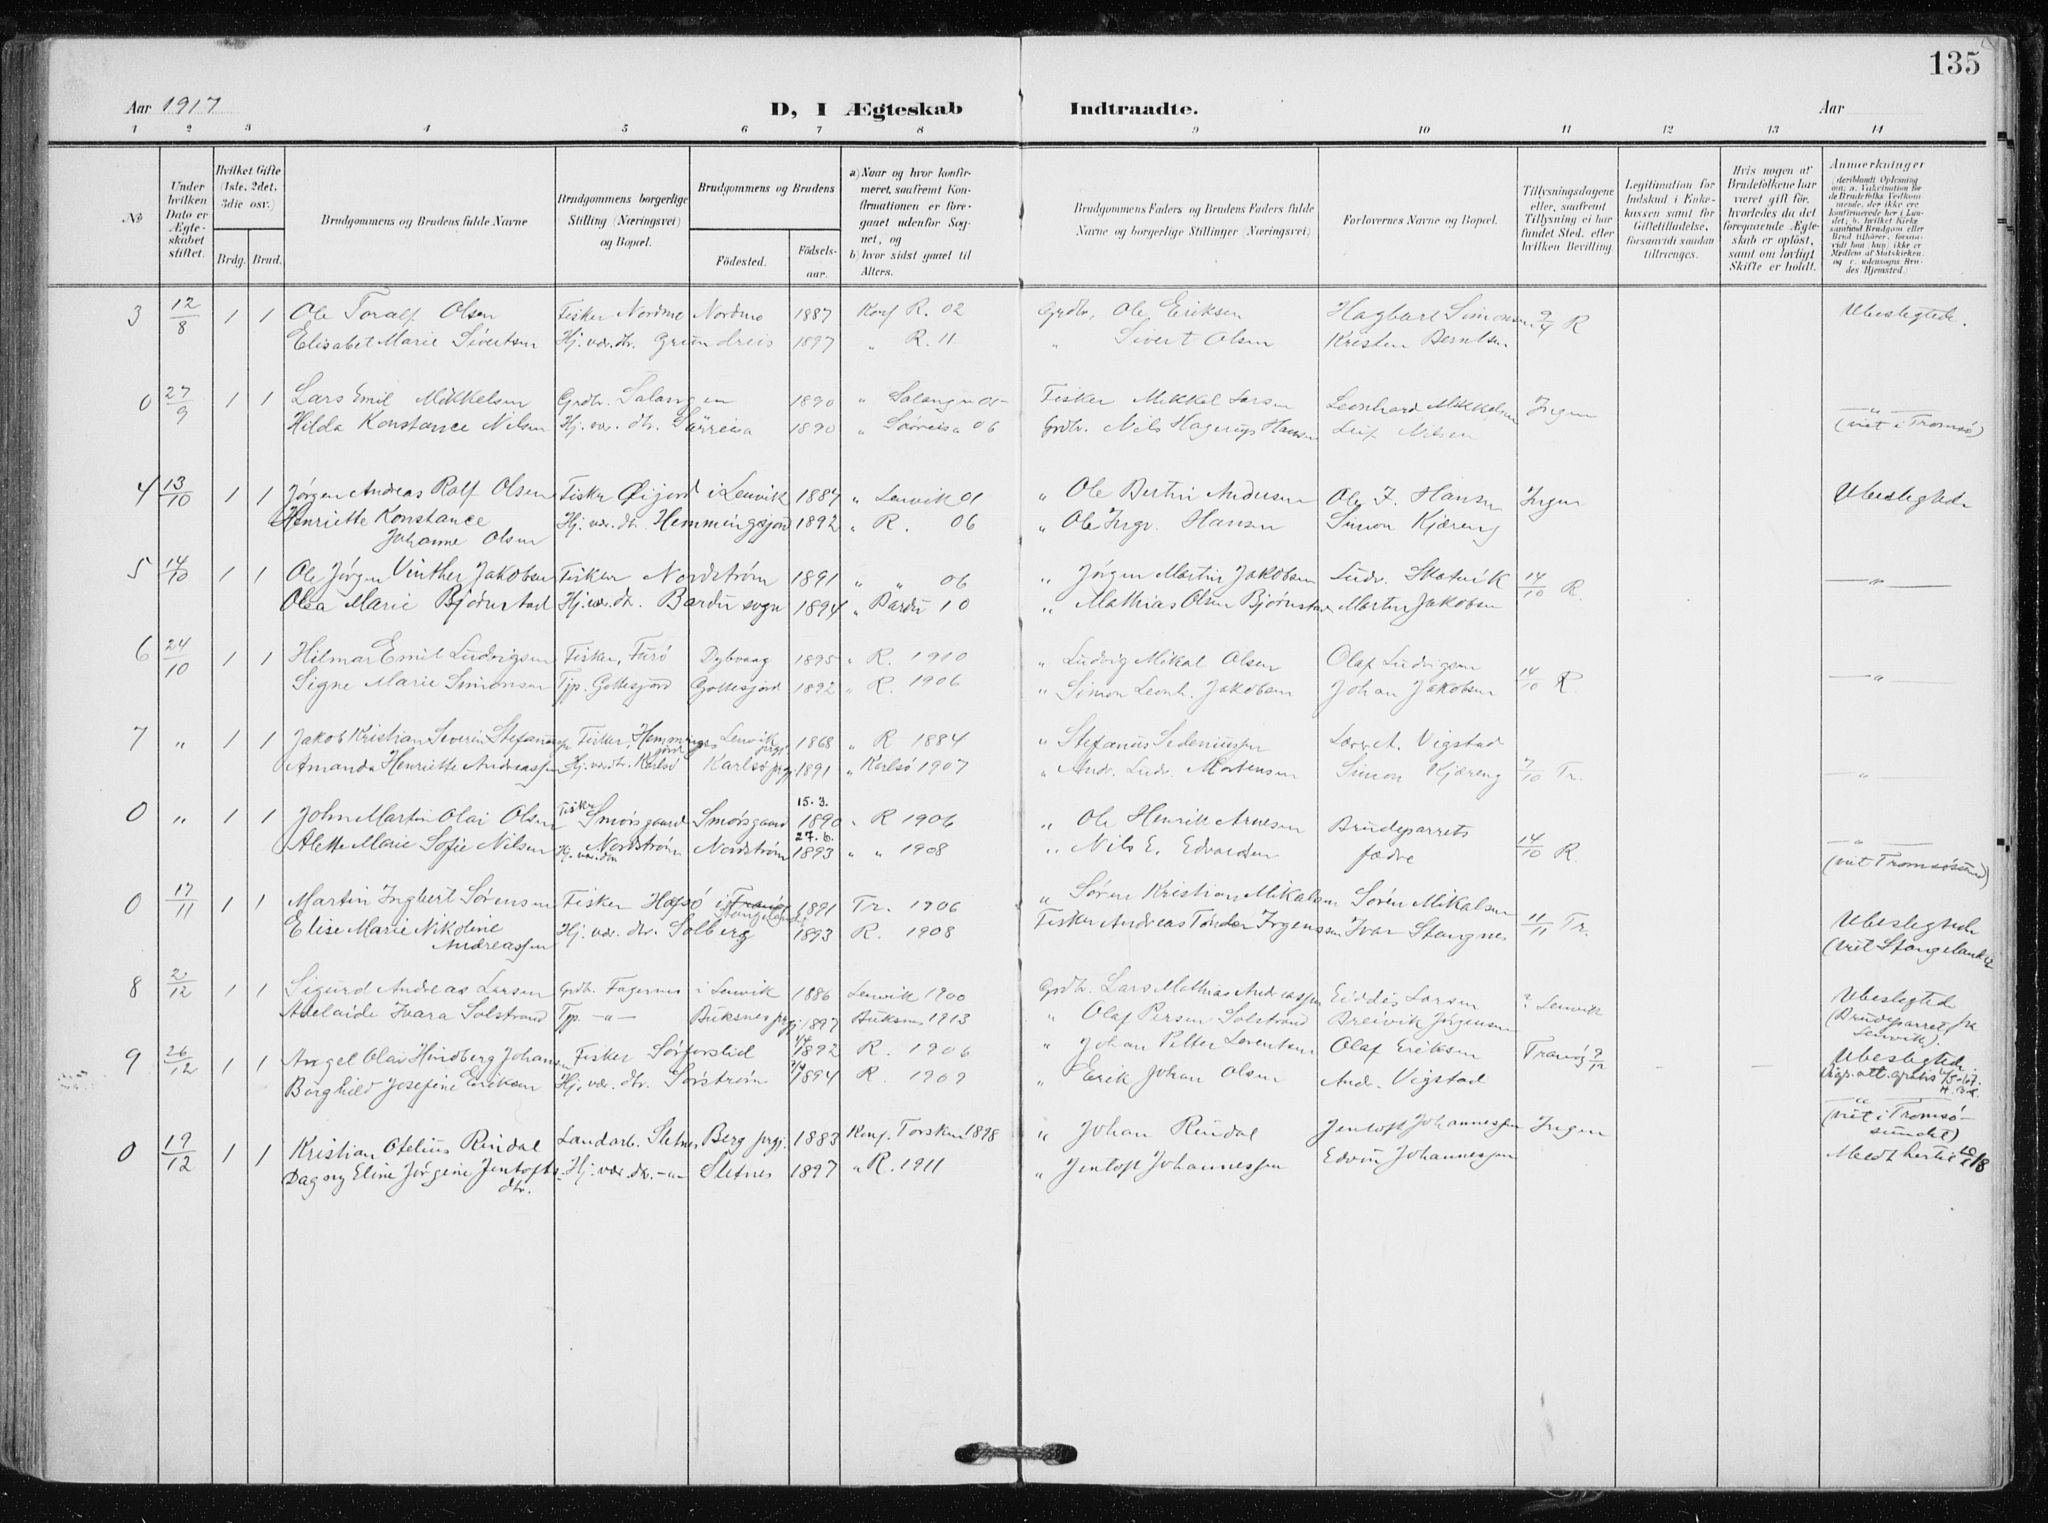 135
Aar 1917 D, I Ægteskab Indtraadte. Aar
1 2 3 4 5 6 7 8 9 10 11 12 13 14
№
Under hvilken Dato er Ægteskabet stiftet.
Hvilket Gifte (1ste, 2det, 3die osv.)
Brdg. Brud.
Brudgommens og Brudens fulde Navne
Brudgommens borgerlige Stilling (Næringsvei) og Bopæl.
Brudgommens og Brudens
Fødested. Fødselsaar.
a) Naar og hvor konfirmeret, saafremt Konfirmationen er foregaaet udenfor Sognet, og
b) hvor sidst gaaet til Alters.
Brudgommens Faders og Brudens Faders fulde Navne og borgerlige Stillinger (Næringsvei)
Forlovernes Navne og Bopæl.
Tillysningsdagene eller, saafremt Tillysning ei har fundet Sted, efter hvilken Bevilling.
Legitimation for Indskud i Enkekassen samt for Giftetilladelse, forsaavidt saadan tiltrænges.
Hvis nogen af Brudefolkene har været gift før, hvorledes da det foregaaende Ægteskab er opløst, samt om lovligt Skifte er holdt.
Anmerkninger
deriblandt Oplysning om: a. Vakcination for de Brudefolks Vedkommende, der ikke ere konfirmerede her i Landet; b. hvilket Kirkesamfund Brudgom eller Brud tilhører, forsaavidt han hun ikke er Medlem af Statskirken, og c. udensogns Brudes Hjemsted.
3 12/8 1 1 Ole Toralf Olsen Fisker Nordmo Nordmo 1887 Konf R. 02 Grdbr. Ole Eriksen Hagbart Simonsen 9/4 R Ubeslegtede.
Elisabet Marie Sivertsen Hj. vær. dtr. Grundreis 1897 " R. 11 " Sivert Olsen Kristen Berntsen
0 27/9 1 1 Lars Emil Mikkelsen Grdbr. Salangen 1890 " Salangen Fisker Mikkal Larsen Leonhard Mikkalsen Ingen —"—
Hilda Konstance Nilsen Hj. vær. dtr. Sørreisa 1890 " Sørreisa 06 Grdbr. Nils Hagerup Hansen Leif Nilsen (viet i Tromsø)
4 13/10 1 1 Jørgen Andreas Ralf Olsen Fisker Øijord i Lenvik 1884 " Lenvik 01 " Ole Bertin Andersen Ole J. Hansen Ingen Ubeslegtede
Henriette Konstance Hj. vær. dtr. Hemmingsjord 1892 " R. 06 " Ole Ingv. Hansen Simon Kjæreng
Johanne Olsen
5 14/10 1 1 Ole Jørgen Vinther Jakobsen Fisker Nordstrøm 1891 " " 06 " Jørgen Martin Jakobsen Ludv. Skotvik 14/10 R. —"—
Olea Marie Bjørnstad Hj. vær. dtr. Bardu sogn 1894 " Bardu 10 " Mathias Olsen Bjørnstad Martin Jakobsen
6 24/10 1 1 Hilmar Emil Ludvigsen Fisker, Furø Dybvaag 1895 " R. 1910 " Ludvig Mikal Olsen Olaf Ludvigsen 14/10 R —"—
Signe Marie Simonsen Tjp. Gottesjord Gottesjord 1892 " R. 1906 " Simon Leonh. Jakobsen Johan Jakobsen
7 " 1 1 Jakob Kristian Severin Stefanussen Fisker, Hemmingsjord Lenvik prgj. 1868 " R 1884 " Stefanus Sedeniussen Vigstad
Amanda Henriette Andreassen Hj. vær. dtr. Karlsø Karlsø prgj. 1891 " Karlsø 1907 " Andr. Ludv. Mortensen Simon Kjæreng 7/10 Tr. —"—
0 " 1 1 John Martin Olai Olsen Fisker Smørsgaard Smørsgaard 15.3. 1890 " R 1906 " Ole Henrik Arnesen Brudeparrets
Alette Marie Sofie Nilsen Hj. vær. dtr. Nordstrøm Nordstrøm 27.6. 1893 " " 1908 " Nils E. Edvardsen fædre 14/10 R. —"—
(viet Tromsøsund)
0 17/11 1 1 Martin Ingbert Sørensen Fisker Hofsø i Tranø Stangelands 1891 Tr. 1906 " Søren Kristian Mikalsen Søren Mikalsen
Elise Marie Nikoline Hj. vær. dtr. Solberg 1893 R. 1908 Fisker Andreas Tønder Jørgenssen Ivar Stangnes 11/11 Tr. Ubeslegtede
Andreassen (viet Stangeland
8 2/12 1 1 Sigurd Andreas Larsen Grdbr. Fagernes i Lenvik 1886 Lenvik 1900 Grdbr. Lars Mathias Andreassen Eiddis Larsen ? Lenvik Ubeslegtede
Adelaide Ivara Solstrand Tjp. —"— Buksnes prgj. 1897 Buksnes 1913 " Olaf Persen Solstrand Breivik Jørgensen (Brudeparret fra Lenvik).
9 26/12 1 1 Angel Olai Hindberg Johansen Fisker Sørforslid 1892 R. 1906 " Johan Petter Lorentsen Olaf Eriksen Tranø 9/12 Ubeslegtede
Borghild Josefine Eriksen Hj. vær. dtr. Sørstrøm 1894 R. 1909 " Erik Johan Olsen Andr. Vigstad
0 19/12 1 1 Kristian Ofelius Rindal Landarb. Sletnes Berg prgj. 1883 Konf. Torsken 1898 " Johan Rindal Jentoft Johannessen Ingen —"— (viet i Tromsøsundet)
Dagny Eline Jørgine Jentofts- Hj. vær. dtr. —"— Sletnes 1897 " R. 1911 " Jentoft Johannessen Edvin Johannessen
dtr.